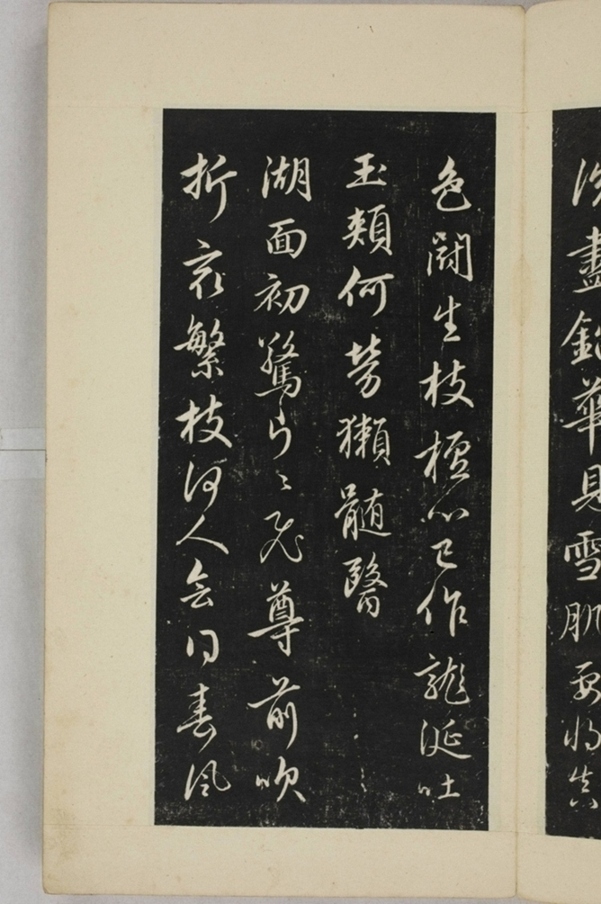 洗盡鉛華見雪肌要將真
色鬪生枝檀心已作龍涎吐
玉頰何勞獺髓醫
湖面初驚片〻飛尊前吹
折最繁枝何人會得春風